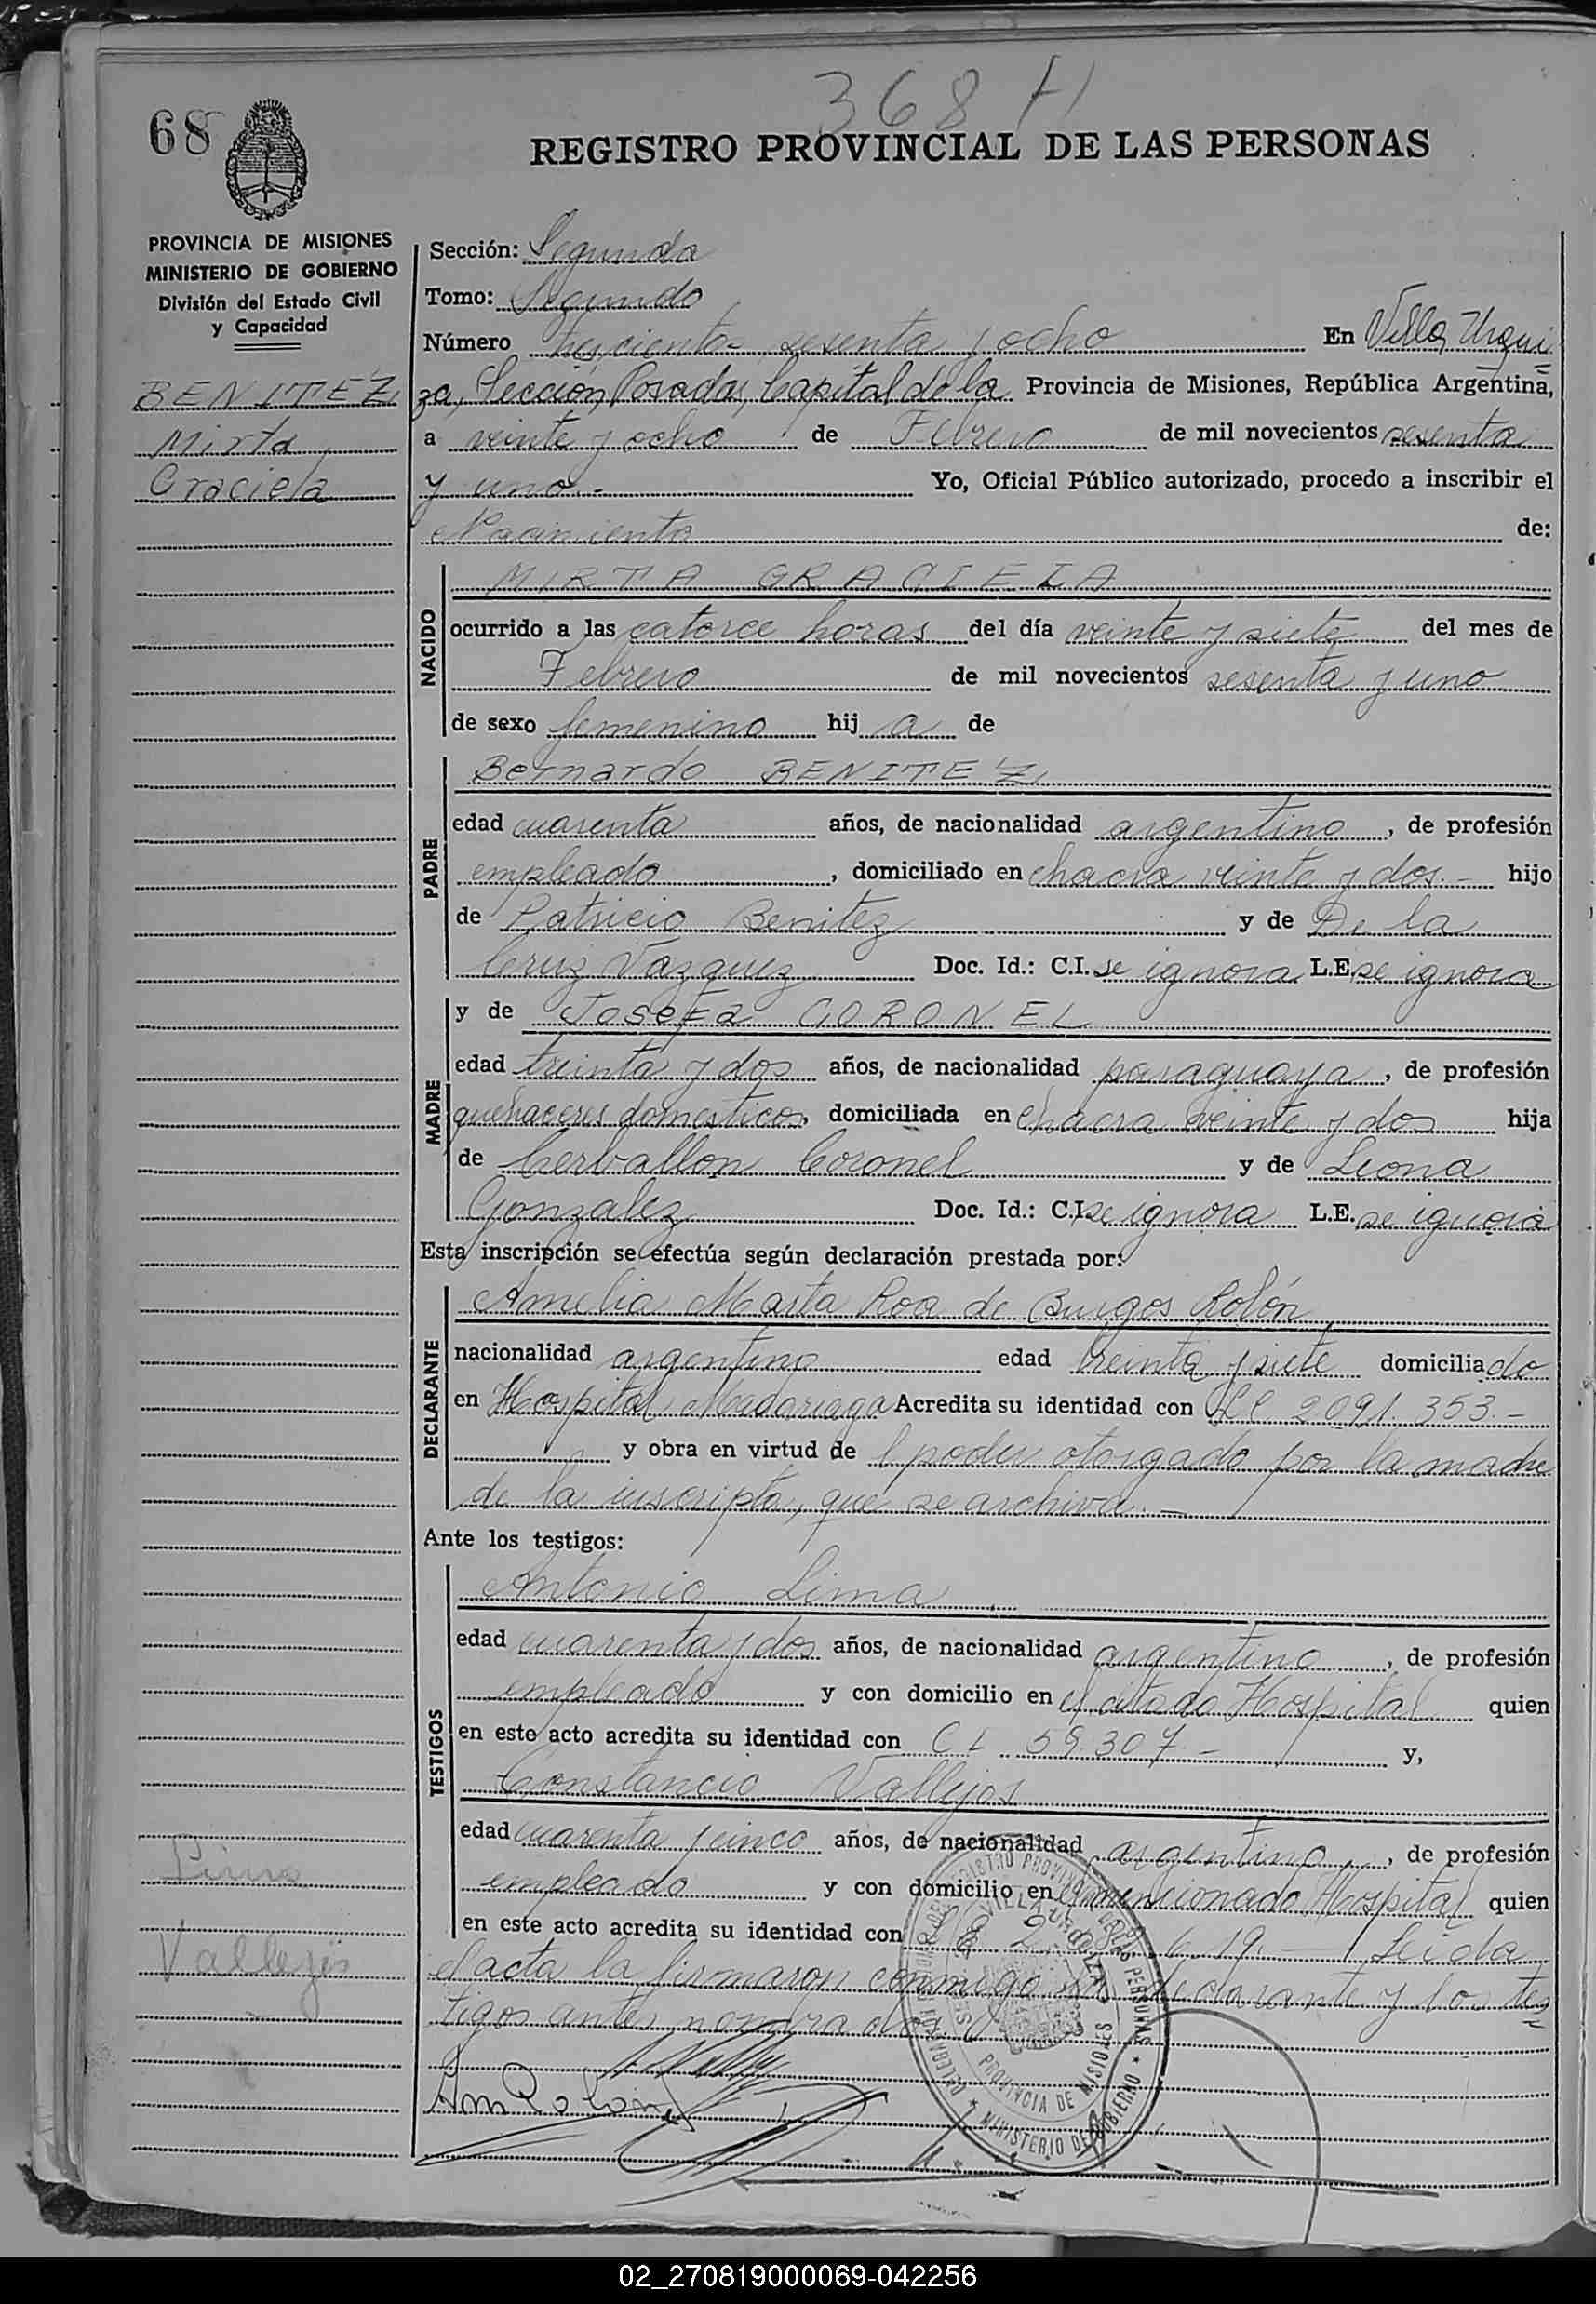 368 H
68
REGISTRO PROVINCIAL DE LAS PERSONAS
PROVINCIA DE MISIONES
MINISTERIO DE GOBIERNO
División del Estado Civil
y Capacidad
BENITEZ
Mirta
Graciela
Sección: Segunda
Tomo: Segundo
Número trescientos sesenta y ocho En Villa Urqui
za, Sección Posadas, Capital de la Provincia de Misiones, República Argentina,
a veinte y ocho de Febrero de mil novecientos sesenta
y uno.- Yo, Oficial Público autorizado, procedo a inscribir el
Nacimiento de:
NACIDO
MIRTA GRACIELA
ocurrido a las catorce horas del día veinte y siete del mes de
Febrero de mil novecientos sesenta y uno
de sexo femenino hij a de
PADRE
Bernardo BENITEZ
edad cuarenta años, de nacionalidad argentino, de profesión
empleado, domiciliado en chacra veinte y dos.- hijo
de Patricio Benitez y de De la
Cruz Vazquez Doc. Id.: C.I. se ignora L.E. se ignora
MADRE
y de Josefa CORONEL
edad treinta y dos años, de nacionalidad paraguaya, de profesión
quehaceres domesticos, domiciliada en chacra veinte y dos hija
de Cerballon Coronel y de Leona
Gonzalez Doc. Id.: C.I. se ignora L.E. se ignora
Esta inscripción se efectúa según declaración prestada por:
DECLARANTE
Amelia Marta Roa de Burgos Rolón
nacionalidad argentina edad treinta y siete domicilia do
en Hospital Madariaga Acredita su identidad con LC 2091.353.-
y obra en virtud de l poder otorgado por la madre
de la inscripta, que se archiva.-
Ante los testigos:
TESTIGOS
Antonio Lima
edad cuarenta y dos años, de nacionalidad argentino, de profesión
empleado y con domicilio en el citado Hospital quien
en este acto acredita su identidad con C I 59.307- y,
Constancio Vallejos
edad cuarenta y cinco años, de nacionalidad argentino, de profesión
empleado y con domicilio en el mencionado Hospital quien
en este acto acredita su identidad con L E 2. Leida
el acta la firmaron conmigo la declarante y los tes
tigos antes nombrados
Lima
Vallejos
Am Rolón
VILLA URQUIZA
PROVINCIA DE MISIONES
MINISTERIO DE GOBIERNO
02_270819000069-042256